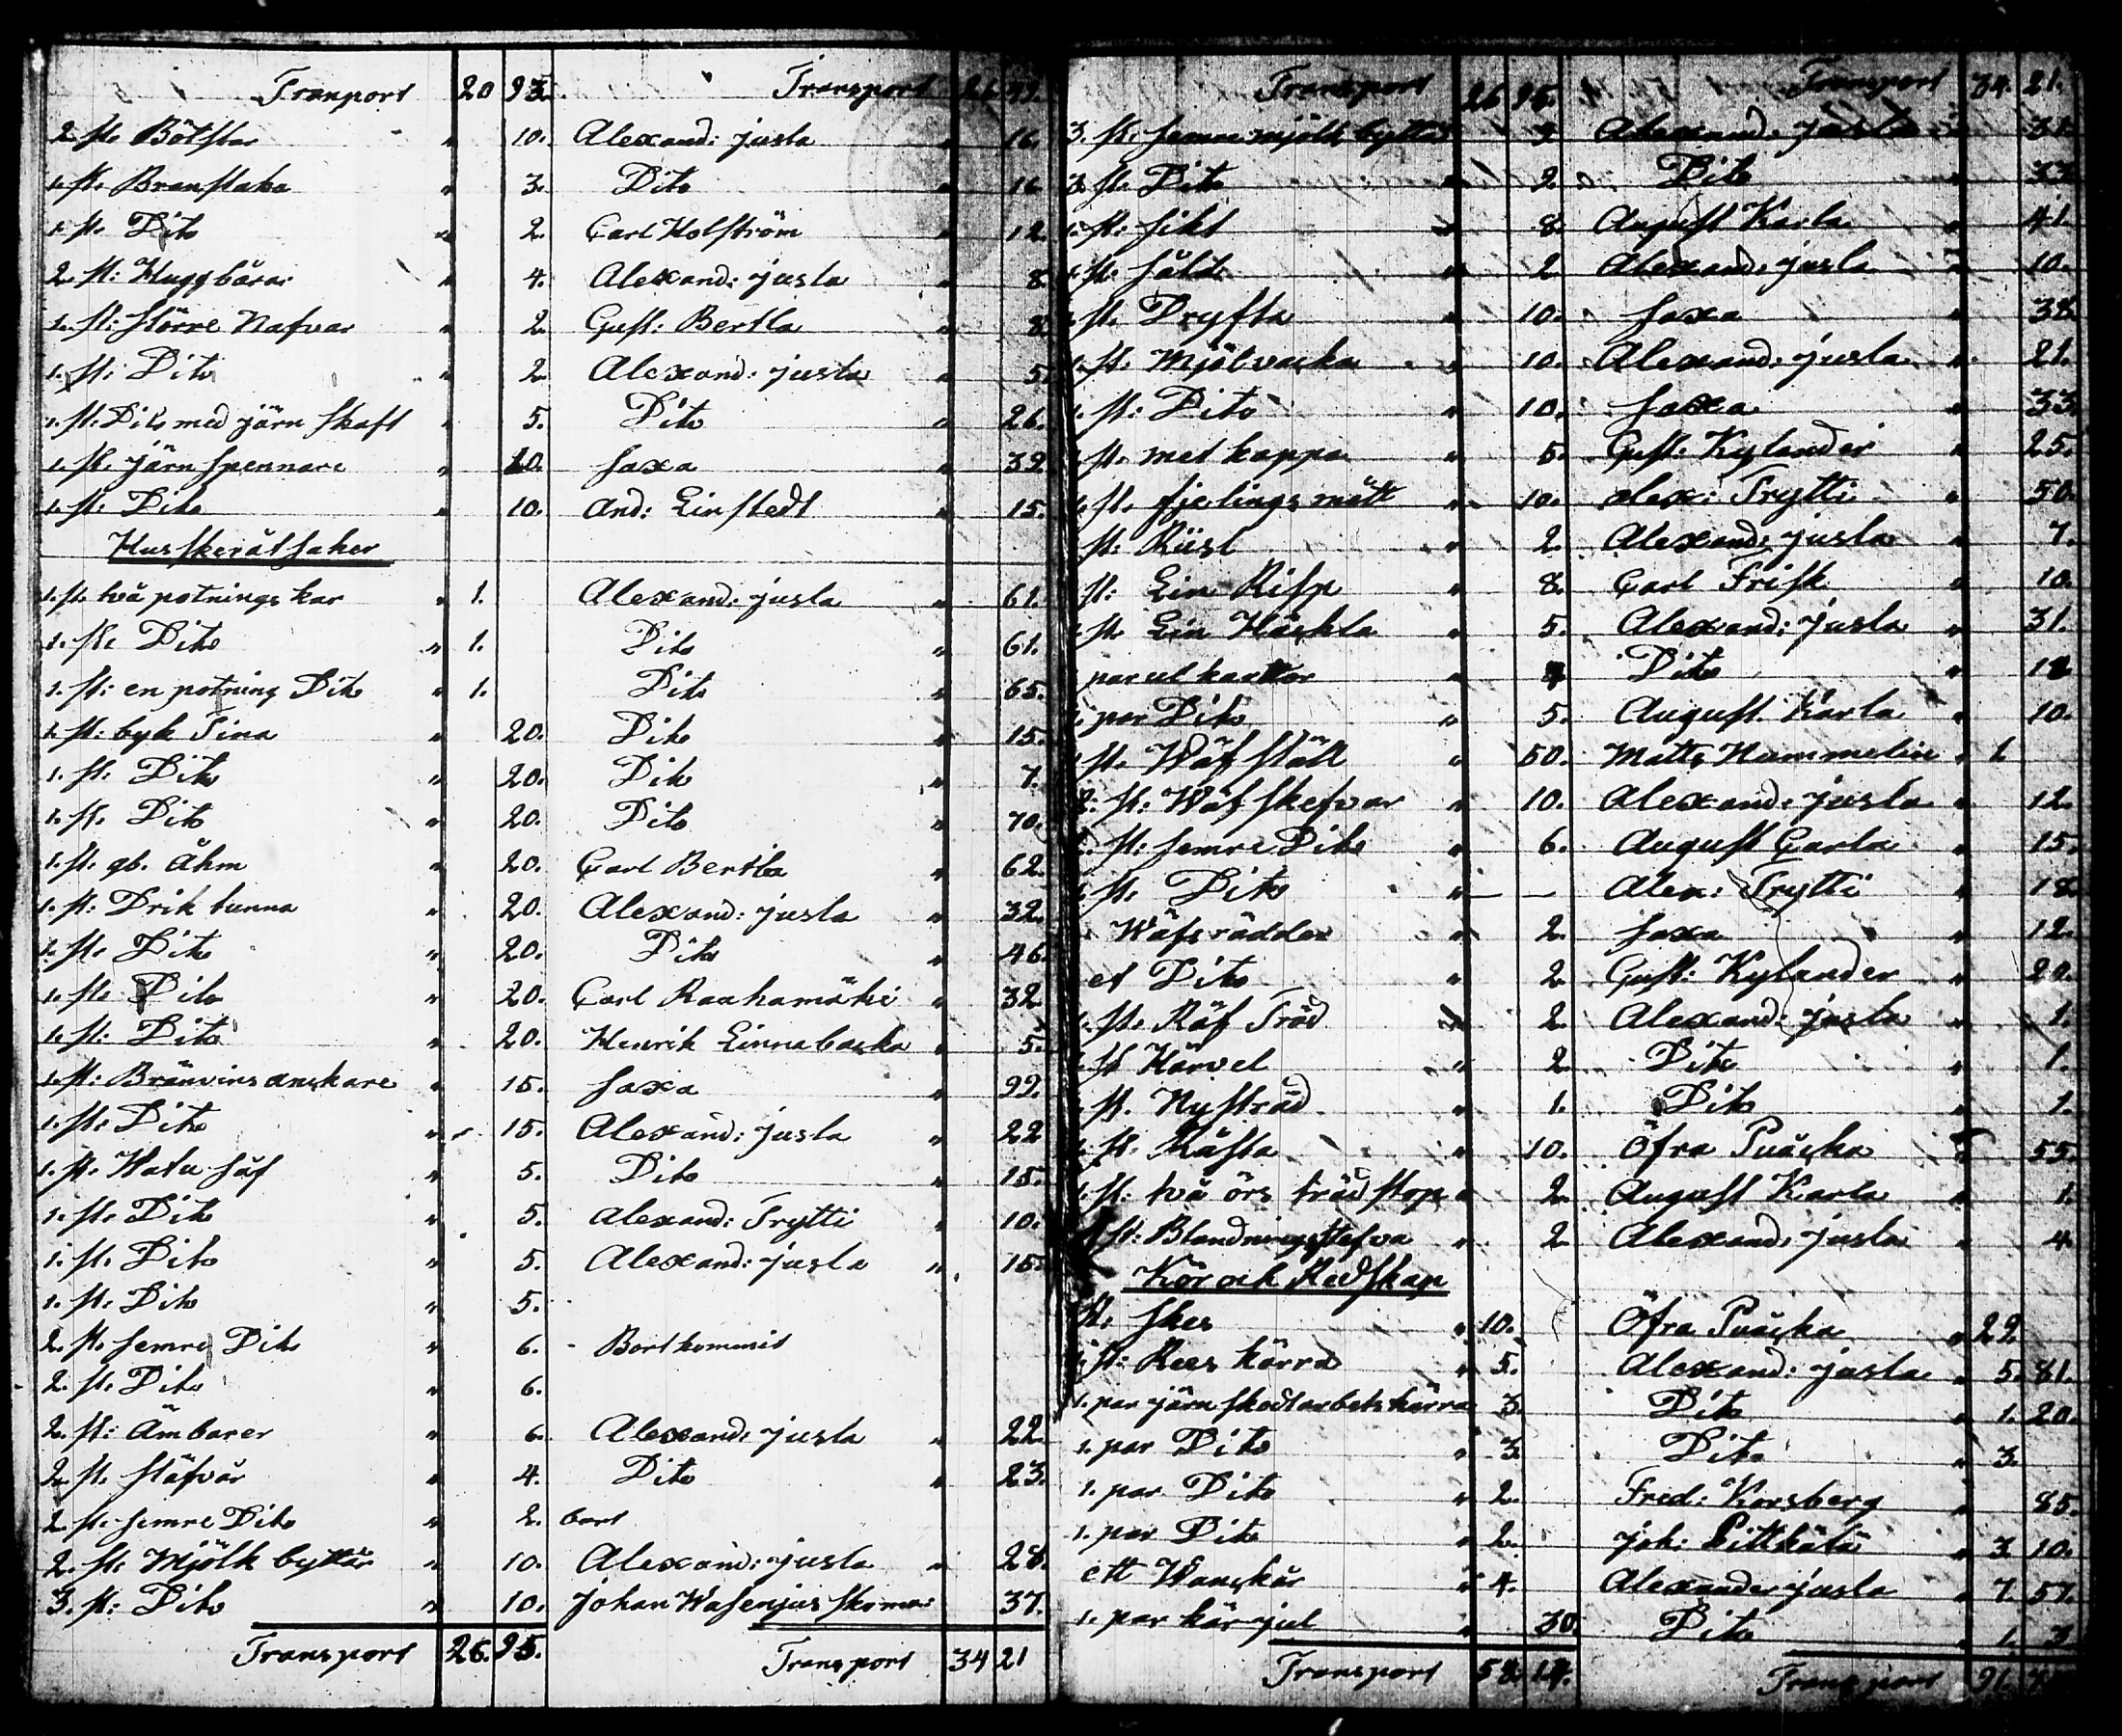 Tranport 20 93. Transport 26 99.
2. st. Bötstar " 10. Alexand: jusla " 16.
1. st. Branstaka " 3. Dito " 16
1. st. Dito " 2. Carl Holström " 12.
2. st: Huggbärar " 4. Alexand: jusla " 8.
1. st: större Nafvar " 2. Gust: Bertla " 8
1. st: Dito " 2 Alexand: jusla " 5.
1. st: Dito med järn skaft " 5. Dito " 26.
1. st. järn spennare " 10. saxa " 39
1. st. Dito " 10. And: Linstedt " 15.
Husskeråtsaker
1. st. två potnings kar " 1. Alexand: jusla " 61.
1. st. Dito " 1. Dito " 61.
1. st: en potning Dito " 1. Dito " 65.
1. st: byk Tina " 20. Dito " 15.
1. st. Dito " 20. Dito " 7.
1. st. Dito " 20. Dito " 70.
1. st. gb. Åhm " 20. Carl Bertla " 62.
1. st: Drik tunna " 20. Alexand: jusla " 32.
1. st. Dito " 20. Dito " 46.
1. st. Dito " 20. Carl Raahamäki " 32
1. st: Dito " 20. Henrik Linnabacka " 5.
1. st: Bränvins anskare " 15. saxa " 99.
1. st: Dito " 15. Alexand: jusla " 22
1. st. Watu såf " 5. Dito " 15.
1. st. Dito " 5. Alexand: Trytti " 10.
1. st. Dito " 5. Alexand: jusla " 15.
1. st: Dito " 5.
2. st. semre Dito " 6. - Bortkommit
2. st. Dito " 6.
2. st: Ämbarer " 6. Alexand: jusla " 22.
2. st. stäfvår " 4. Dito " 23.
2. st. semre Dito " 2. bort
2. st: Mjölk byttår " 10. Alexand: jusla " 28.
3. st: Dito " 10. Johan Wasenjus 37.
Transport 26. 95. Transport 34 21

Transport 26 95. Transport 34. 21.
3. st. semre mjölk byttor Alexand: jusla
3. st. Dito " 2. Dito " 33
1. st. sikt " 8. August Karla " 41.
1. st. såld " 2 Alexand: jusla " 10.
1. st. Dryfta " 10. saxa " 38
1. st. Mjölvacka " 10. Alexand: jusla " 21.
1. st: Dito " 10. saxa " 33.
1. st. met kappa " 5. Gust: Kylander " 25.
1. st. fjelings mått " 10. Alex: Trytti " 50.
st: Riisl " 2. Alexand: jusla " 7.
st: Lin Risp " 8. Carl Frisk " 10.
1. st Lin Häckla " 5. Alexand: jusla " 31.
par ul kardor " Dito " 12
1. par Dito " 5. August. Karla " 10.
1. st. Wäf ställ " 50. Matts Hammelin " 1
2. st: Wäf skefvar " 10. Alexand: jusla " 12.
st: semre Dito " 6. August Carla " 15.
1. st. Dito " — Alex: Trytti " 18
Wäfsrädder " 2. saxa " 12.
et Dito " 2. Gust: Kylander " 20.
1. st. Räf Tråd " 2. Alexand: jusla " 1.
1. st Härvel " 2. Dito " 1.
1. st. Nysträd " 1. Dito " 1.
1. st. Råsta " 10. Öfra Puåcka " 55.
1. st: två örs träd stop " 2. August Karla " 1.
1 st: Blandningsstefva " 2 Alexand: jusla " 4.
Kör och Redskap
st. skes " 10. Öfra Puåcka " 22
1. st: Rees kärra " 5. Alexand: jusla " 5. 81.
1. par järn skodt arbets kärra 3. Dito " 1. 20.
1. par Dito " 3 Dito " 3.
1. par Dito " 2. Fred: Korsberg " 85.
1. par Dito " 2. Joh: Pitkälä " 3 10.
ett Wanskär " 4. Alexander jusla " 7. 57.
1. par kär jul " 30. Dito " 1. 3
Transport Transport 91.